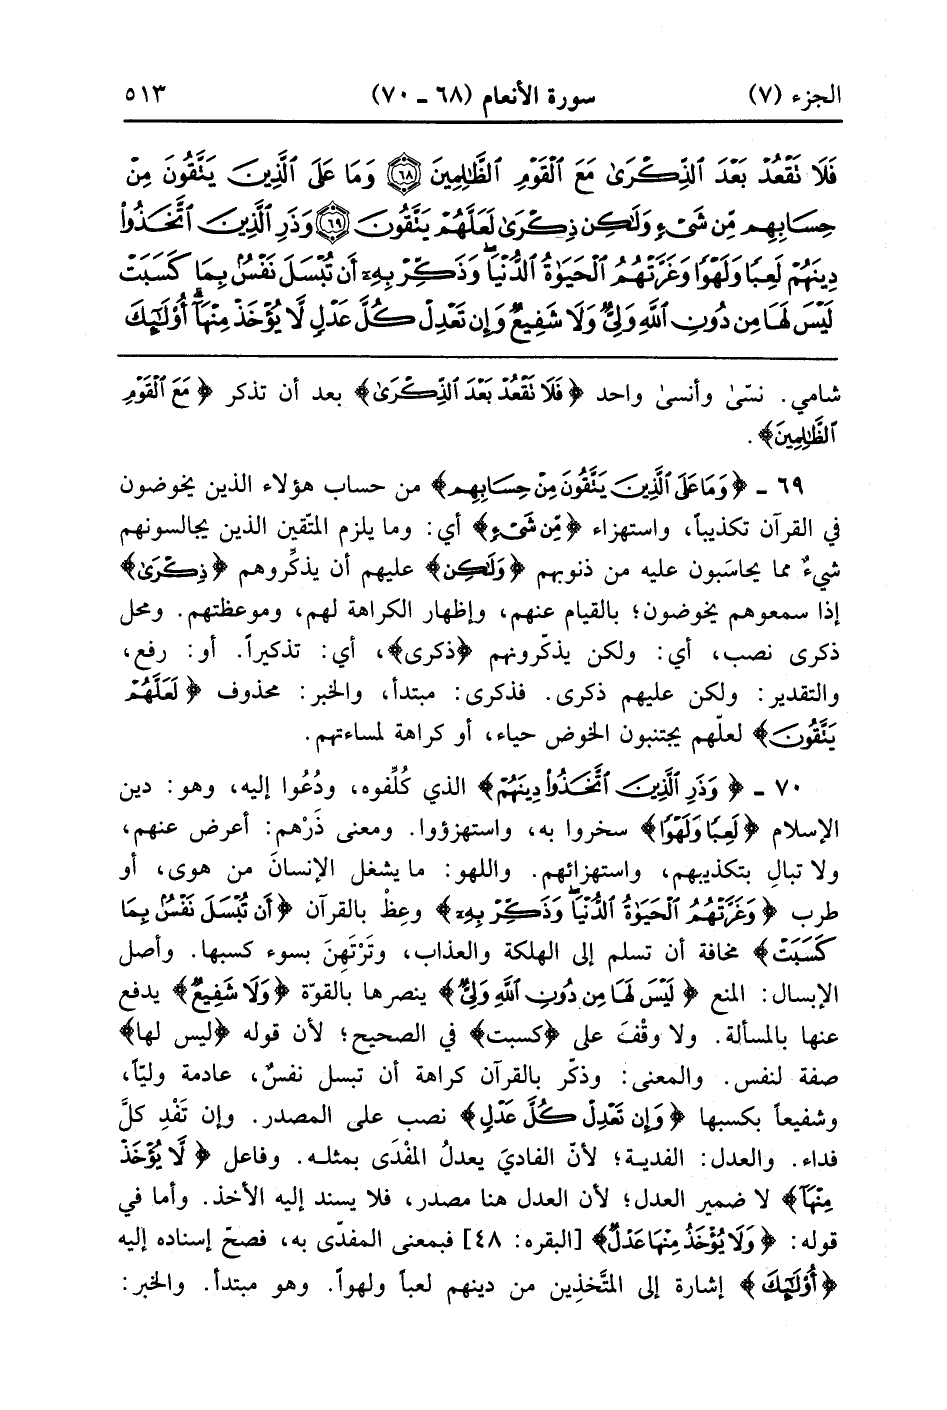 الجزء (٧) سورة الأنعام (٦٨ - ٧٠) ٥١٣
فَلَا تَقْعُدْ بَعْدَ ٱلذِّكْرَىٰ مَعَ ٱلْقَوْمِ ٱلظَّٰلِمِينَ ٦٨ وَمَا عَلَى ٱلَّذِينَ يَتَّقُونَ مِنْ
حِسَابِهِم مِّن شَىْءٍ وَلَٰكِن ذِكْرَىٰ لَعَلَّهُمْ يَتَّقُونَ ٦٩ وَذَرِ ٱلَّذِينَ ٱتَّخَذُوا۟
دِينَهُمْ لَعِبًا وَلَهْوًا وَغَرَّتْهُمُ ٱلْحَيَوٰةُ ٱلدُّنْيَا ۚ وَذَكِّرْ بِهِۦٓ أَن تُبْسَلَ نَفْسٌۢ بِمَا كَسَبَتْ
لَيْسَ لَهَا مِن دُونِ ٱللَّهِ وَلِىٌّ وَلَا شَفِيعٌ وَإِن تَعْدِلْ كُلَّ عَدْلٍ لَّا يُؤْخَذْ مِنْهَآ ۗ أُو۟لَٰٓئِكَ
شامي. نسّىٰ وأنسىٰ واحد ﴿فَلَا تَقْعُدْ بَعْدَ ٱلذِّكْرَىٰ﴾ بعد أن تذكر ﴿مَعَ ٱلْقَوْمِ
ٱلظَّٰلِمِينَ﴾.
٦٩ - ﴿وَمَا عَلَى ٱلَّذِينَ يَتَّقُونَ مِنْ حِسَابِهِم﴾ من حساب هؤلاء الذين يخوضون
في القرآن تكذيباً، واستهزاء ﴿مِّن شَىْءٍ﴾ أي: وما يلزم المتّقين الذين يجالسونهم
شيءٌ مما يحاسَبون عليه من ذنوبهم ﴿وَلَٰكِن﴾ عليهم أن يذكِّروهم ﴿ذِكْرَىٰ﴾
إذا سمعوهم يخوضون؛ بالقيام عنهم، وإظهار الكراهة لهم، وموعظتهم. ومحل
ذكرى نصب، أي: ولكن يذكّرونهم ﴿ذكرى﴾، أي: تذكيراً. أو: رفع،
والتقدير: ولكن عليهم ذكرى. فذكرى: مبتدأ، والخبر: محذوف ﴿لَعَلَّهُمْ
يَتَّقُونَ﴾ لعلّهم يجتنبون الخوض حياء، أو كراهة لمساءتهم.
٧٠ - ﴿وَذَرِ ٱلَّذِينَ ٱتَّخَذُوا۟ دِينَهُمْ﴾ الذي كُلِّفوه، ودُعُوا إليه، وهو: دين
الإسلام ﴿لَعِبًا وَلَهْوًا﴾ سخروا به، واستهزؤوا. ومعنى ذَرْهم: أعرض عنهم،
ولا تبالِ بتكذيبهم، واستهزائهم. واللهو: ما يشغل الإنسانَ من هوى، أو
طرب ﴿وَغَرَّتْهُمُ ٱلْحَيَوٰةُ ٱلدُّنْيَا ۚ وَذَكِّرْ بِهِۦٓ﴾ وعِظْ بالقرآن ﴿أَن تُبْسَلَ نَفْسٌۢ بِمَا
كَسَبَتْ﴾ مخافة أن تسلم إلى الهلكة والعذاب، وتَرْتَهِنَ بسوء كسبها. وأصل
الإبسال: المنع ﴿لَيْسَ لَهَا مِن دُونِ ٱللَّهِ وَلِىٌّ﴾ ينصرها بالقوّة ﴿وَلَا شَفِيعٌ﴾ يدفع
عنها بالمسألة. ولا وقْفَ على ﴿كسبت﴾ في الصحيح؛ لأن قوله ﴿ليس لها﴾
صفة لنفس. والمعنى: وذكّر بالقرآن كراهة أن تبسل نفسٌ، عادمة وليّاً،
وشفيعاً بكسبها ﴿وَإِن تَعْدِلْ كُلَّ عَدْلٍ﴾ نصب على المصدر. وإن تَفْدِ كلَّ
فداء. والعدل: الفدية؛ لأنّ الفاديَ يعدلُ المفْدَى بمثله. وفاعل ﴿لَّا يُؤْخَذْ
مِنْهَآ﴾ لا ضمير العدل؛ لأن العدل هنا مصدر، فلا يسند إليه الأخذ. وأما في
قوله: ﴿وَلَا يُؤْخَذُ مِنْهَا عَدْلٌ﴾ [البقره: ٤٨] فبمعنى المفدّى به، فصحّ إسناده إليه
﴿أُو۟لَٰٓئِكَ﴾ إشارة إلى المتَّخذِين من دينهم لعباً ولهواً. وهو مبتدأ. والخبر: